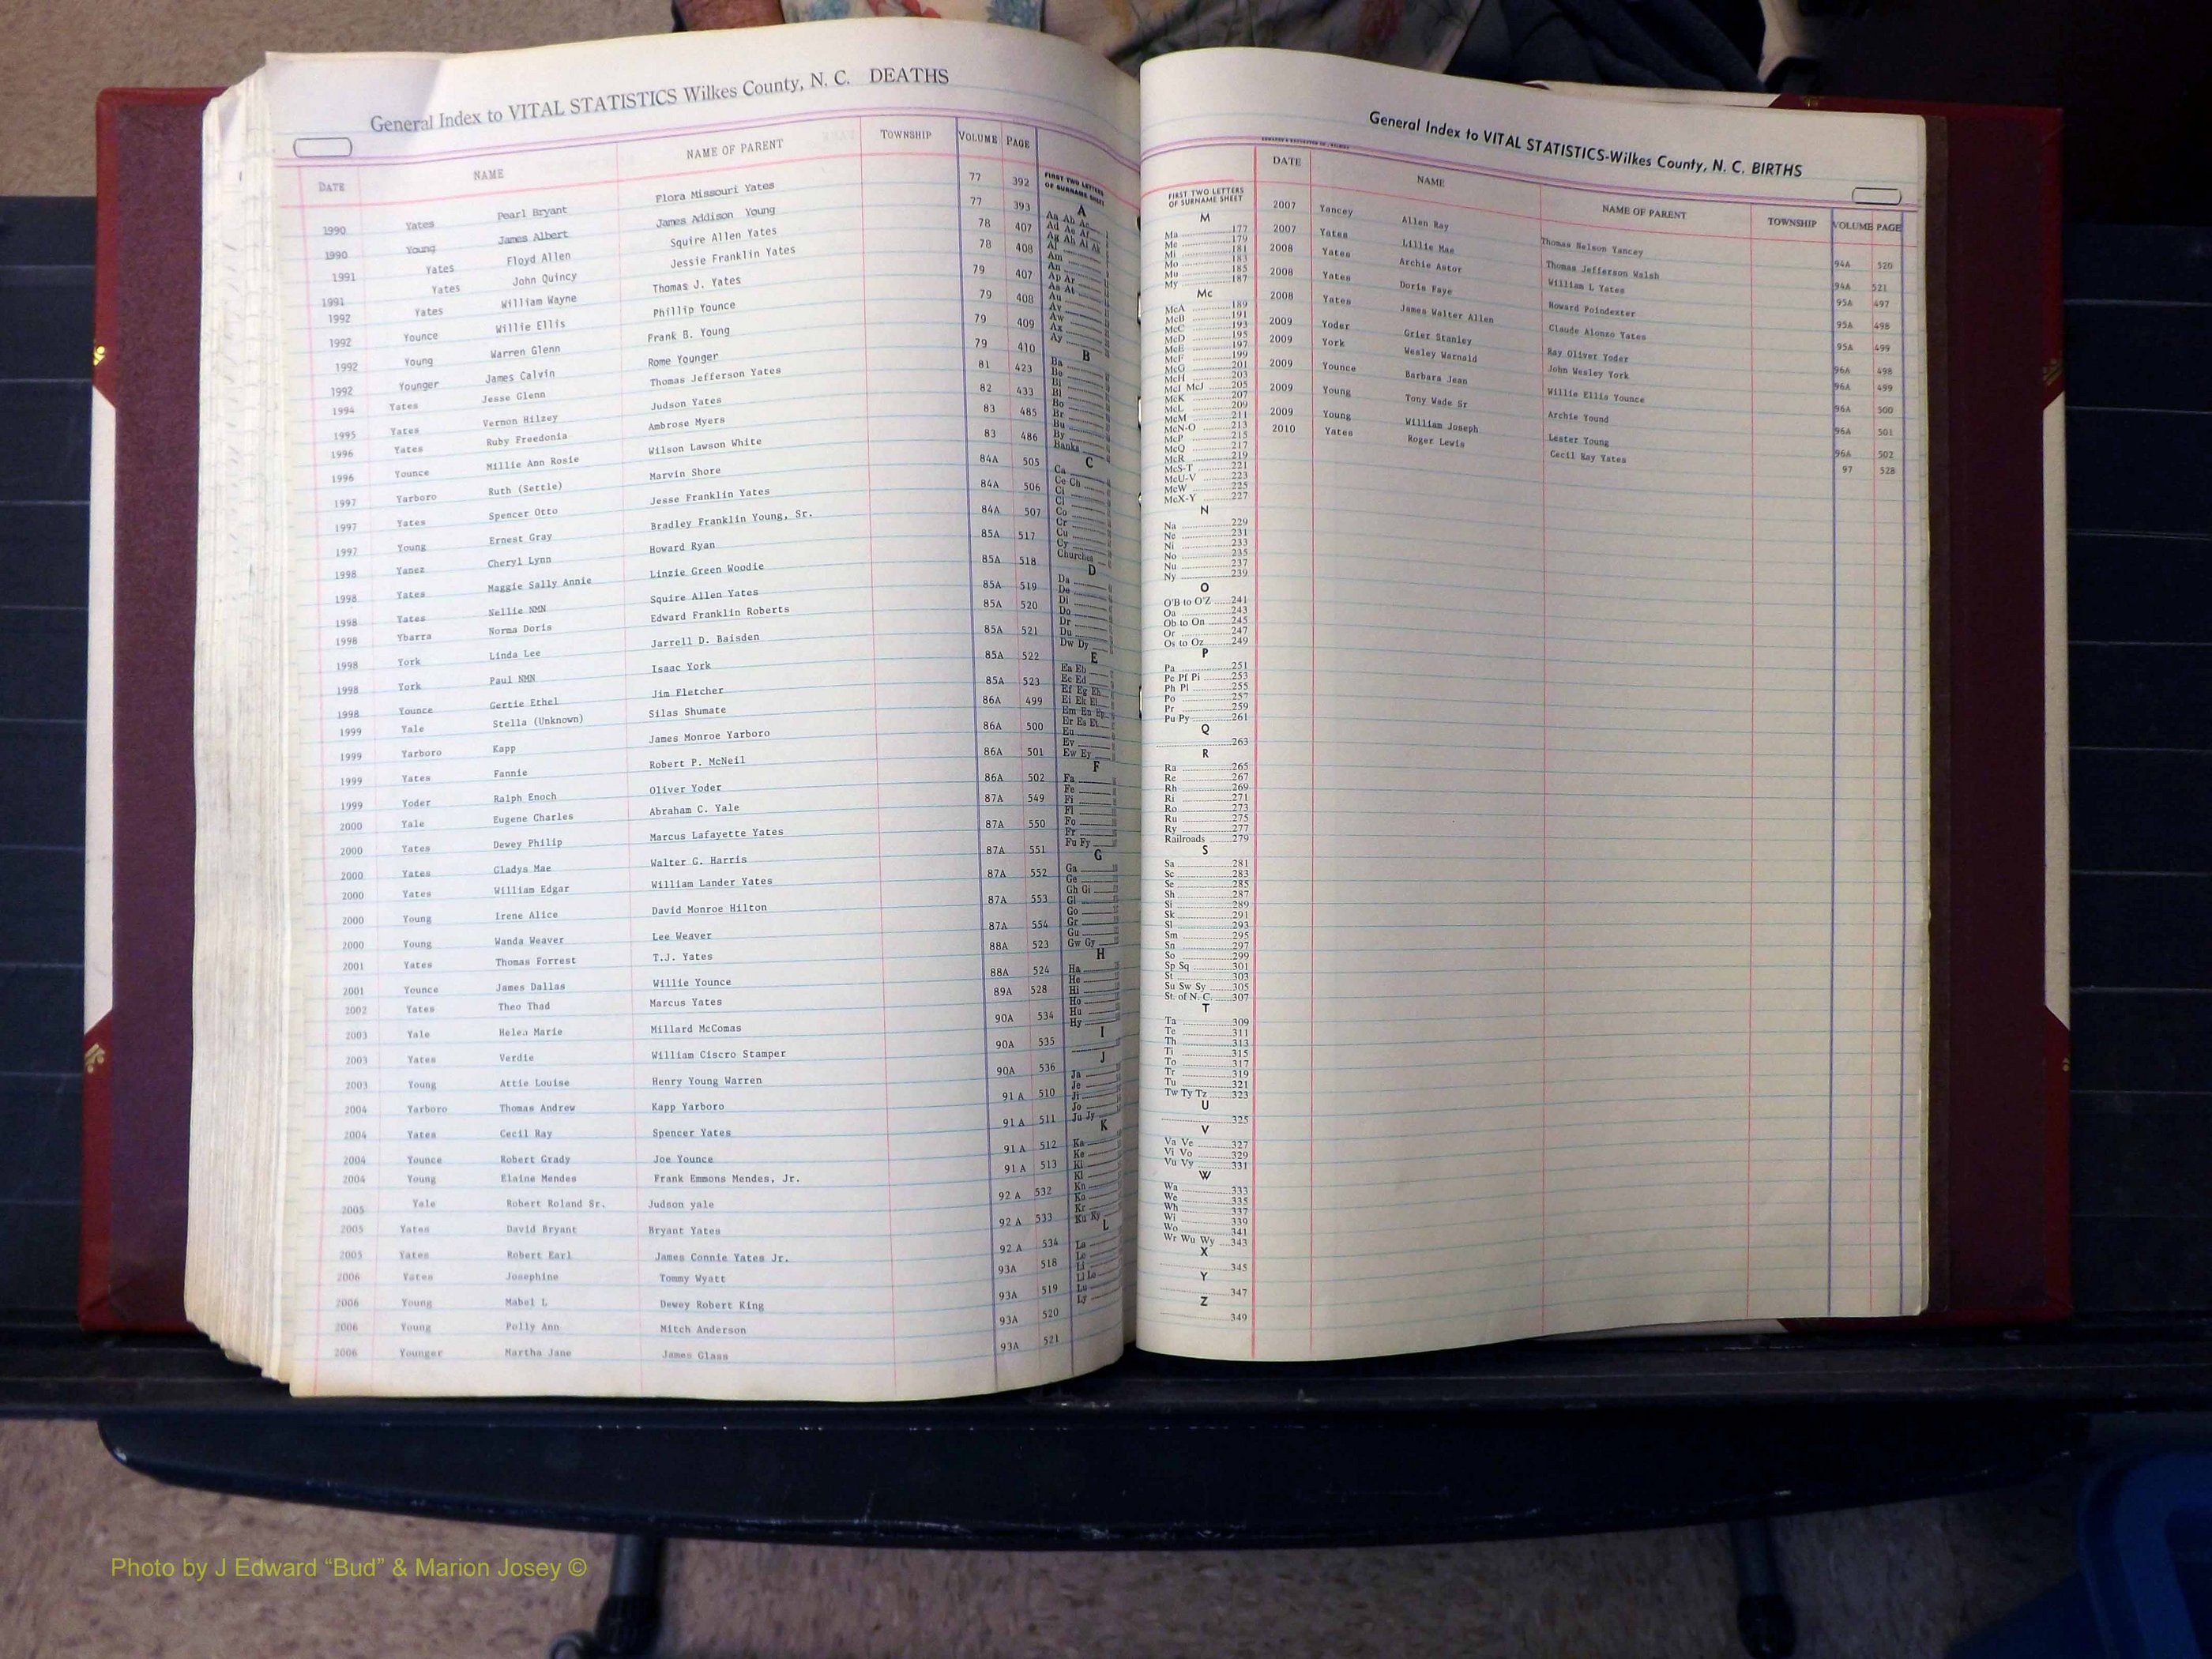 General Index to VITAL STATISTICS Wilkes County, N. C. DEATHS
DATE NAME NAME OF PARENT TOWNSHIP VOLUME PAGE
1990 Yates Pearl Bryant Flora Missouri Yates 77 392
1990 Young James Albert James Addison Young 77 393
1991 Yates Floyd Allen Squire Allen Yates 78 407
1991 Yates John Quincy Jessie Franklin Yates 78 408
1992 Yates William Wayne Thomas J. Yates 79 407
1992 Younce Willie Ellis Phillip Younce 79 408
1992 Young Warren Glenn Frank B. Young 79 409
1992 Younger James Calvin Rome Younger 79 410
1994 Yates Jesse Glenn Thomas Jefferson Yates 81 423
1995 Yates Vernon Hilzey Judson Yates 82 433
1996 Yates Ruby Freedonia Ambrose Myers 83 485
1996 Younce Millie Ann Rosie Wilson Lawson White 83 486
1997 Yarboro Ruth (Settle) Marvin Shore 84A 505
1997 Yates Spencer Otto Jesse Franklin Yates 84A 506
1997 Young Ernest Gray Bradley Franklin Young, Sr. 84A 507
1998 Yanez Cheryl Lynn Howard Ryan 85A 517
1998 Yates Maggie Sally Annie Linzie Green Woodie 85A 518
1998 Yates Nellie NMN Squire Allen Yates 85A 519
1998 Ybarra Norma Doris Edward Franklin Roberts 85A 520
1998 York Linda Lee Jarrell D. Baisden 85A 521
1998 York Paul NMN Isaac York 85A 522
1998 Younce Gertie Ethel Jim Fletcher 85A 523
1999 Yale Stella (Unknown) Silas Shumate 86A 499
1999 Yarboro Kapp James Monroe Yarboro 86A 500
1999 Yates Fannie Robert P. McNeil 86A 501
1999 Yoder Ralph Enoch Oliver Yoder 86A 502
2000 Yale Eugene Charles Abraham C. Yale 87A 549
2000 Yates Dewey Philip Marcus Lafayette Yates 87A 550
2000 Yates Gladys Mae Walter G. Harris 87A 551
2000 Yates William Edgar William Lander Yates 87A 552
2000 Young Irene Alice David Monroe Hilton 87A 553
2000 Young Wanda Weaver Lee Weaver 87A 554
2001 Yates Thomas Forrest T.J. Yates 88A 523
2001 Younce James Dallas Willie Younce 88A 524
2002 Yates Theo Thad Marcus Yates 89A 528
2003 Yale Helen Marie Millard McComas 90A 534
2003 Yates Verdie William Ciscro Stamper 90A 535
2003 Young Attie Louise Henry Young Warren 90A 536
2004 Yarboro Thomas Andrew Kapp Yarboro 91 A 510
2004 Yates Cecil Ray Spencer Yates 91 A 511
2004 Younce Robert Grady Joe Younce 91 A 512
2004 Young Elaine Mendes Frank Emmons Mendes, Jr. 91 A 513
2005 Yale Robert Roland Sr. Judson yale 92 A 532
2005 Yates David Bryant Bryant Yates 92 A 533
2005 Yates Robert Earl James Connie Yates Jr. 92 A 534
2006 Yates Josephine Tommy Wyatt 93A 518
2006 Young Mabel L Dewey Robert King 93A 519
2006 Young Polly Ann Mitch Anderson 93A 520
2006 Younger Martha Jane James Glass 93A 521
FIRST TWO LETTERS
OF SURNAME SHEET
A
Aa Ab Ac
Ad Ae Af
Ag Ah Ai Ak
Al
Am
An
Ap Ar
As At
Au
Av
Aw
Ax
Ay
B
Ba
Be
Bi
Bl
Bo
Br
Bu
By
Banks
C
Ca
Ce Ch
Ci
Cl
Co
Cr
Cu
Cy
Churches
D
Da
De
Di
Do
Dr
Du
Dw Dy
E
Ea Eb
Ec Ed
Ef Eg Eh
Ei Ek El
Em En Ep
Er Es Et
Eu
Ev
Ew Ey
F
Fa
Fe
Fi
Fl
Fo
Fr
Fu Fy
G
Ga
Ge
Gh Gi
Gl
Go
Gr
Gu
Gw Gy
H
Ha
He
Hi
Ho
Hu
Hy
I
J
Ja
Je
Ji
Jo
Ju Jy
K
Ka
Ke
Ki
Kl
Kn
Ko
Kr
Ku Ky
L
La
Le
Li
Ll Lo
Lu
Ly
General Index to VITAL STATISTICS-Wilkes County, N. C. BIRTHS
FIRST TWO LETTERS
OF SURNAME SHEET
M
Ma 177
Me 179
Mi 181
Mo 183
Mu 185
My 187
Mc
McA 189
McB 191
McC 193
McD 195
McE 197
McF 199
McG 201
McH 203
McI McJ 205
McK 207
McL 209
McM 211
McN-O 213
McP 215
McQ 217
McR 219
McS-T 221
McU-V 223
McW 225
McX-Y 227
N
Na 229
Ne 231
Ni 233
No 235
Nu 237
Ny 239
O
O'B to O'Z 241
Oa 243
Ob to On 245
Or 247
Os to Oz 249
P
Pa 251
Pe Pf Pi 253
Ph Pl 255
Po 257
Pr 259
Pu Py 261
Q
263
R
Ra 265
Re 267
Rh 269
Ri 271
Ro 273
Ru 275
Ry 277
Railroads 279
S
Sa 281
Sc 283
Se 285
Sh 287
Si 289
Sk 291
Sl 293
Sm 295
Sn 297
So 299
Sp Sq 301
St 303
Su Sw Sy 305
St. of N. C. 307
T
Ta 309
Te 311
Th 313
Ti 315
To 317
Tr 319
Tu 321
Tw Ty Tz 323
U
325
V
Va Ve 327
Vi Vo 329
Vu Vy 331
W
Wa 333
We 335
Wh 337
Wi 339
Wo 341
Wr Wu Wy 343
X
345
Y
347
Z
349
DATE NAME NAME OF PARENT TOWNSHIP VOLUME PAGE
2007 Yancey Allen Ray Thomas Nelson Yancey 94A 520
2007 Yates Lillie Mae Thomas Jefferson Walsh 94A 521
2008 Yates Archie Astor William L Yates 95A 497
2008 Yates Doris Faye Howard Poindexter 95A 498
2008 Yates James Walter Allen Claude Alonzo Yates 95A 499
2009 Yoder Grier Stanley Ray Oliver Yoder 96A 498
2009 York Wesley Warnald John Wesley York 96A 499
2009 Younce Barbara Jean Willie Ellis Younce 96A 500
2009 Young Tony Wade Sr Archie Yound 96A 501
2009 Young William Joseph Lester Young 96A 502
2010 Yates Roger Lewis Cecil Ray Yates 97 528
Photo by J Edward “Bud” & Marion Josey ©